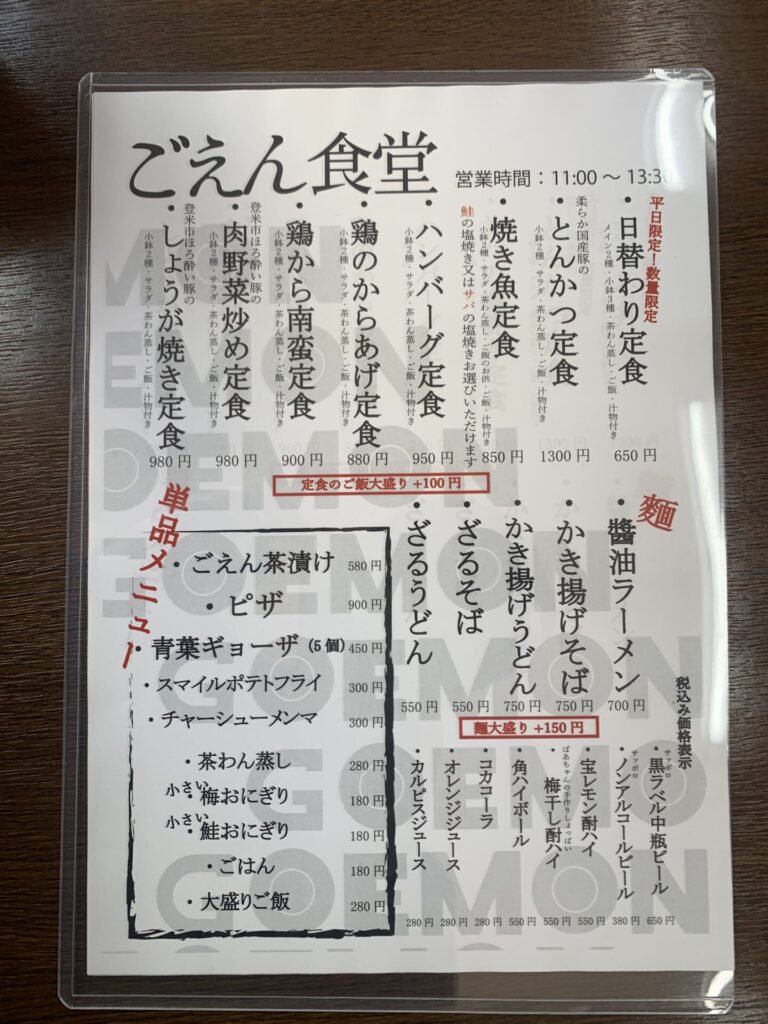 ごえん食堂
営業時間：11:00 ～ 13:30
平日限定！数量限定
・日替わり定食
メイン2種・小鉢3種・茶わん蒸し・ご飯・汁物付き
650 円
柔らか国産豚の
・とんかつ定食
小鉢2種・サラダ・茶わん蒸し・ご飯・汁物付き
1300 円
・焼き魚定食
小鉢2種・サラダ・茶わん蒸し・ご飯のお供・ご飯・汁物付き
鮭の塩焼き又はサバの塩焼きお選びいただけます
850 円
・ハンバーグ定食
小鉢2種・サラダ・茶わん蒸し・ご飯・汁物付き
950 円
・鶏のからあげ定食
小鉢2種・サラダ・茶わん蒸し・ご飯・汁物付き
880 円
・鶏から南蛮定食
小鉢2種・サラダ・茶わん蒸し・ご飯・汁物付き
900 円
登米市ほろ酔い豚の
・肉野菜炒め定食
小鉢2種・サラダ・茶わん蒸し・ご飯・汁物付き
980 円
登米市ほろ酔い豚の
・しょうが焼き定食
小鉢2種・サラダ・茶わん蒸し・ご飯・汁物付き
980 円
定食のご飯大盛り +100 円
麺
・醤油ラーメン
700 円
・かき揚げそば
750 円
・かき揚げうどん
750 円
・ざるそば
550 円
・ざるうどん
550 円
麺大盛り +150 円
税込み価格表示
サッポロ
・黒ラベル中瓶ビール
650 円
サッポロ
・ノンアルコールビール
380 円
・宝レモン酎ハイ
550 円
ばあちゃんの手作りしょっぱい
・梅干し酎ハイ
550 円
・角ハイボール
550 円
・コカコーラ
280 円
・オレンジジュース
280 円
・カルピスジュース
280 円
単品メニュー
・ごえん茶漬け 580 円
・ピザ 900 円
・青葉ギョーザ（5 個） 450 円
・スマイルポテトフライ 300 円
・チャーシューメンマ 300 円
・茶わん蒸し 280 円
小さい
・梅おにぎり 180 円
小さい
・鮭おにぎり 180 円
・ごはん 180 円
・大盛りご飯 280 円
GOEMON